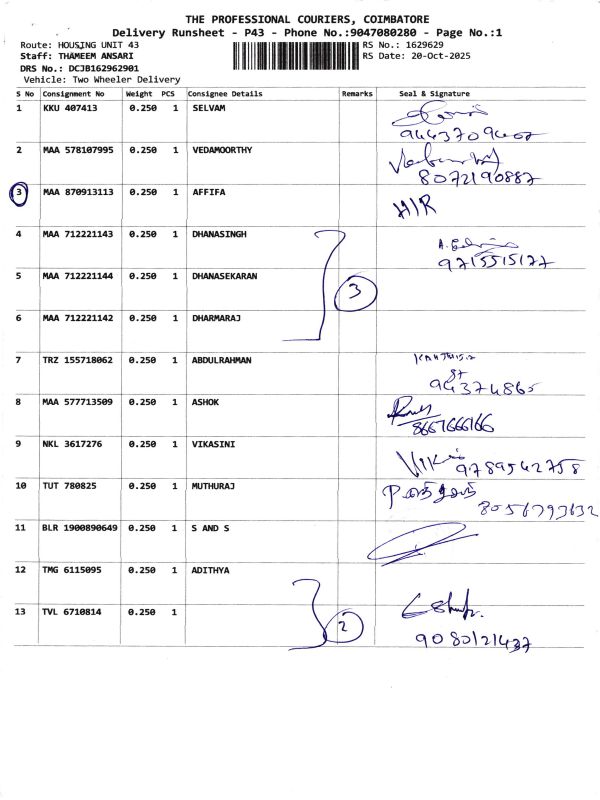 THE PROFESSIONAL COURIERS, COIMBATORE
Delivery Runsheet - P43 - Phone No.:9047080280 - Page No.:1
Route: HOUSING UNIT 43 RS No.: 1629629
Staff: THAMEEM ANSARI RS Date: 20-Oct-2025
DRS No.: DCJB162962901
Vehicle: Two Wheeler Delivery
S No Consignment No Weight PCS Consignee Details Remarks Seal & Signature
1 KKU 407413 0.250 1 SELVAM
2 MAA 578107995 0.250 1 VEDAMOORTHY
8072190887
3 MAA 870913113 0.250 1 AFFIFA H/R
4 MAA 712221143 0.250 1 DHANASINGH
9715515177
5 MAA 712221144 0.250 1 DHANASEKARAN 3
6 MAA 712221142 0.250 1 DHARMARAJ
7 TRZ 155718062 0.250 1 ABDULRAHMAN
8 MAA 577713509 0.250 1 ASHOK
8667666166
9 NKL 3617276 0.250 1 VIKASINI
9789542758
10 TUT 780825 0.250 1 MUTHURAJ
8056793632
11 BLR 1900890649 0.250 1 S AND S
12 TMG 6115095 0.250 1 ADITHYA
13 TVL 6710814 0.250 1 2
9080121437